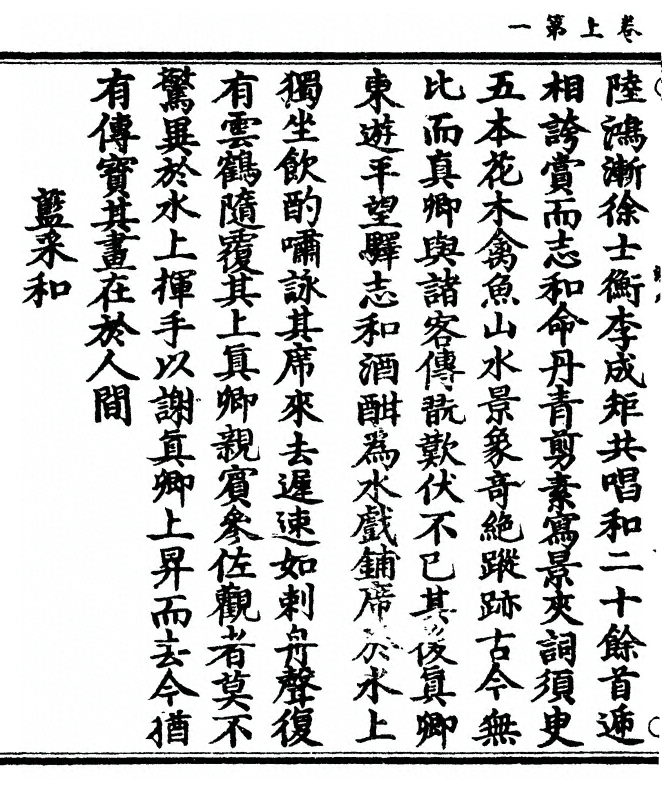 卷上第一
陸鴻漸徐士衡李成矩共唱和二十餘首遞
相誇賞而志和命丹青剪素寫景夾詞須臾
五本花木禽魚山水景象奇絶蹤跡古今無
比而真卿與諸客傳翫歎伏不已其後真卿
東遊平望驛志和酒酣為水戲鋪席於水上
獨坐飲酌嘯詠其席來去遲速如刺舟聲復
有雲鶴隨覆其上真卿親賓參佐觀者莫不
驚異於水上揮手以謝真卿上昇而去今猶
有傳寳其畫在於人間
藍采和